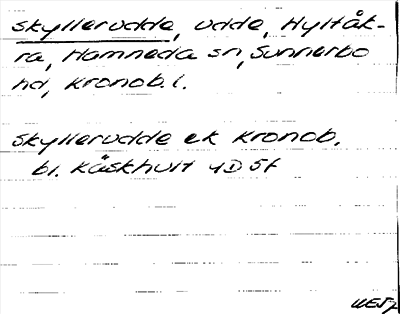 Skyllerudde, udde, Hyltåk-
ra, Hamneda sn, Sunnerbo
hd, Kronob. l.
Skyllerudde ek Kronob.
bl. Kåskhult 4D 5f